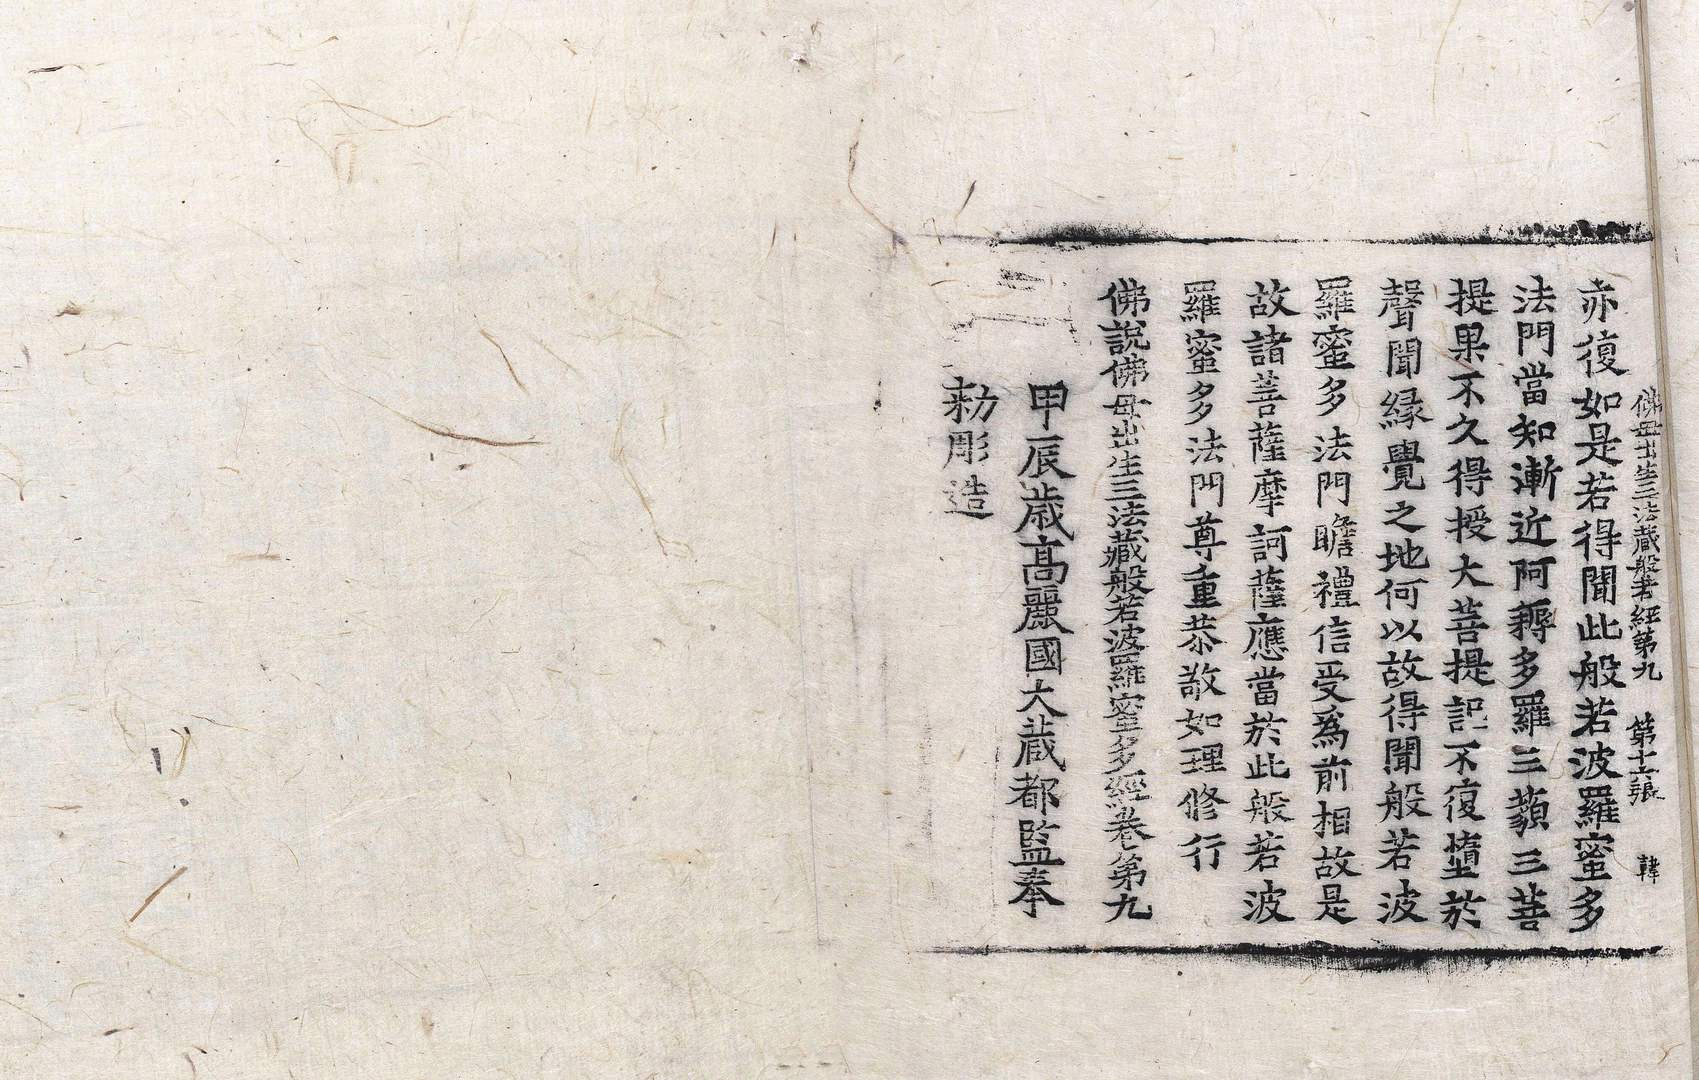 佛母出生三法藏般若經第九 第十六張 韓
亦復如是若得聞此般若波羅蜜多
法門當知漸近阿耨多羅三藐三菩
提果不久得授大菩提記不復墮於
聲聞緣覺之地何以故得聞般若波
羅蜜多法門瞻禮信受爲前相故是
故諸菩薩摩訶薩應當於此般若波
羅蜜多法門尊重恭敬如理修行
佛說佛母出生三法藏般若波羅蜜多經卷第九
甲辰歲高麗國大藏都監奉
勅彫造